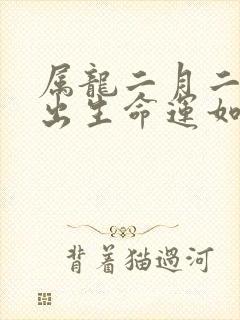 属龍二月二
出生命運如
背着猫過河